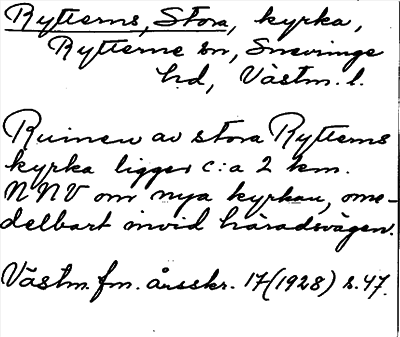 Rytterns, Stora, kyrka,
Rytterne sn, Snevringe
hd, Västm. l.
Ruinen av stora Rytterns
kyrka ligger c:a 2 km.
NNV om nya kyrkan, ome-
delbart invid häradsvägen.
Västm. fm. årsskr. 17 (1928) s. 47.